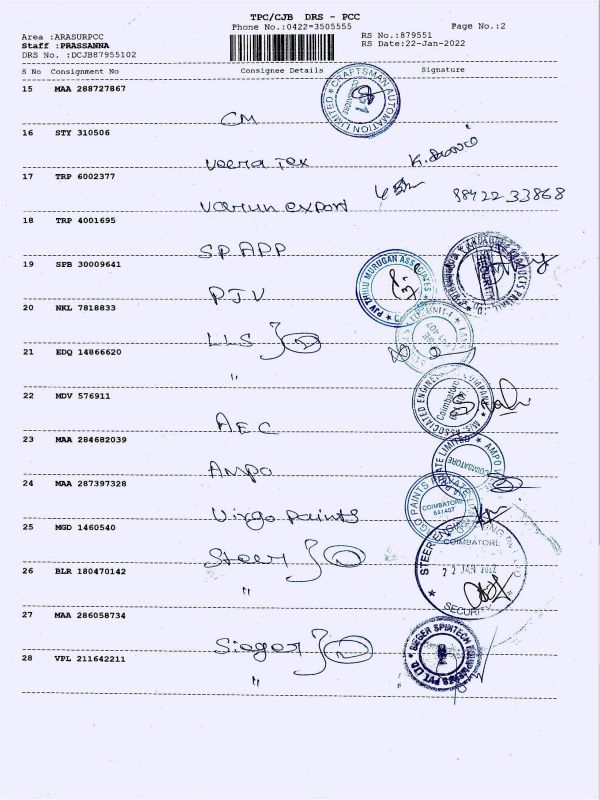 TPC/CJB DRS - PCC
Phone No.:0422-3505555 Page No.:2
Area :ARASURPCC RS No.:879551
Staff :PRASSANNA RS Date:22-Jan-2022
DRS No. :DCJB87955102
S No Consignment No Consignee Details Signature
15 MAA 288727867
CM
CRAFTSMAN AUTOMATION LIMITED
16 STY 310506
Veera Tex
17 TRP 6002377
Varun export 98422 33868
18 TRP 4001695
SP APP
19 SPB 30009641
PJV
PJV THIRU MURUGAN ASSOCIATES
SECURITY
20 NKL 7818833
LLS
21 EDQ 14866620
"
22 MDV 576911
AEC
M/S. ASSOCIATED ENGINEERING COMPANY
Coimbatore
23 MAA 284682039
AMPO
AMPO
COIMBATORE
24 MAA 287397328
Virgo Paints
VIRGO PAINTS PRIVATE LIMITED
COIMBATORE
641407
25 MGD 1460540
Steer
STEER ENGINEERING
COIMBATORE
22 JAN 2022
SECURITY
26 BLR 180470142
"
27 MAA 286058734
Sieger
SIEGER SPINTECH EQUIPMENTS PVT LTD
28 VPL 211642211
"